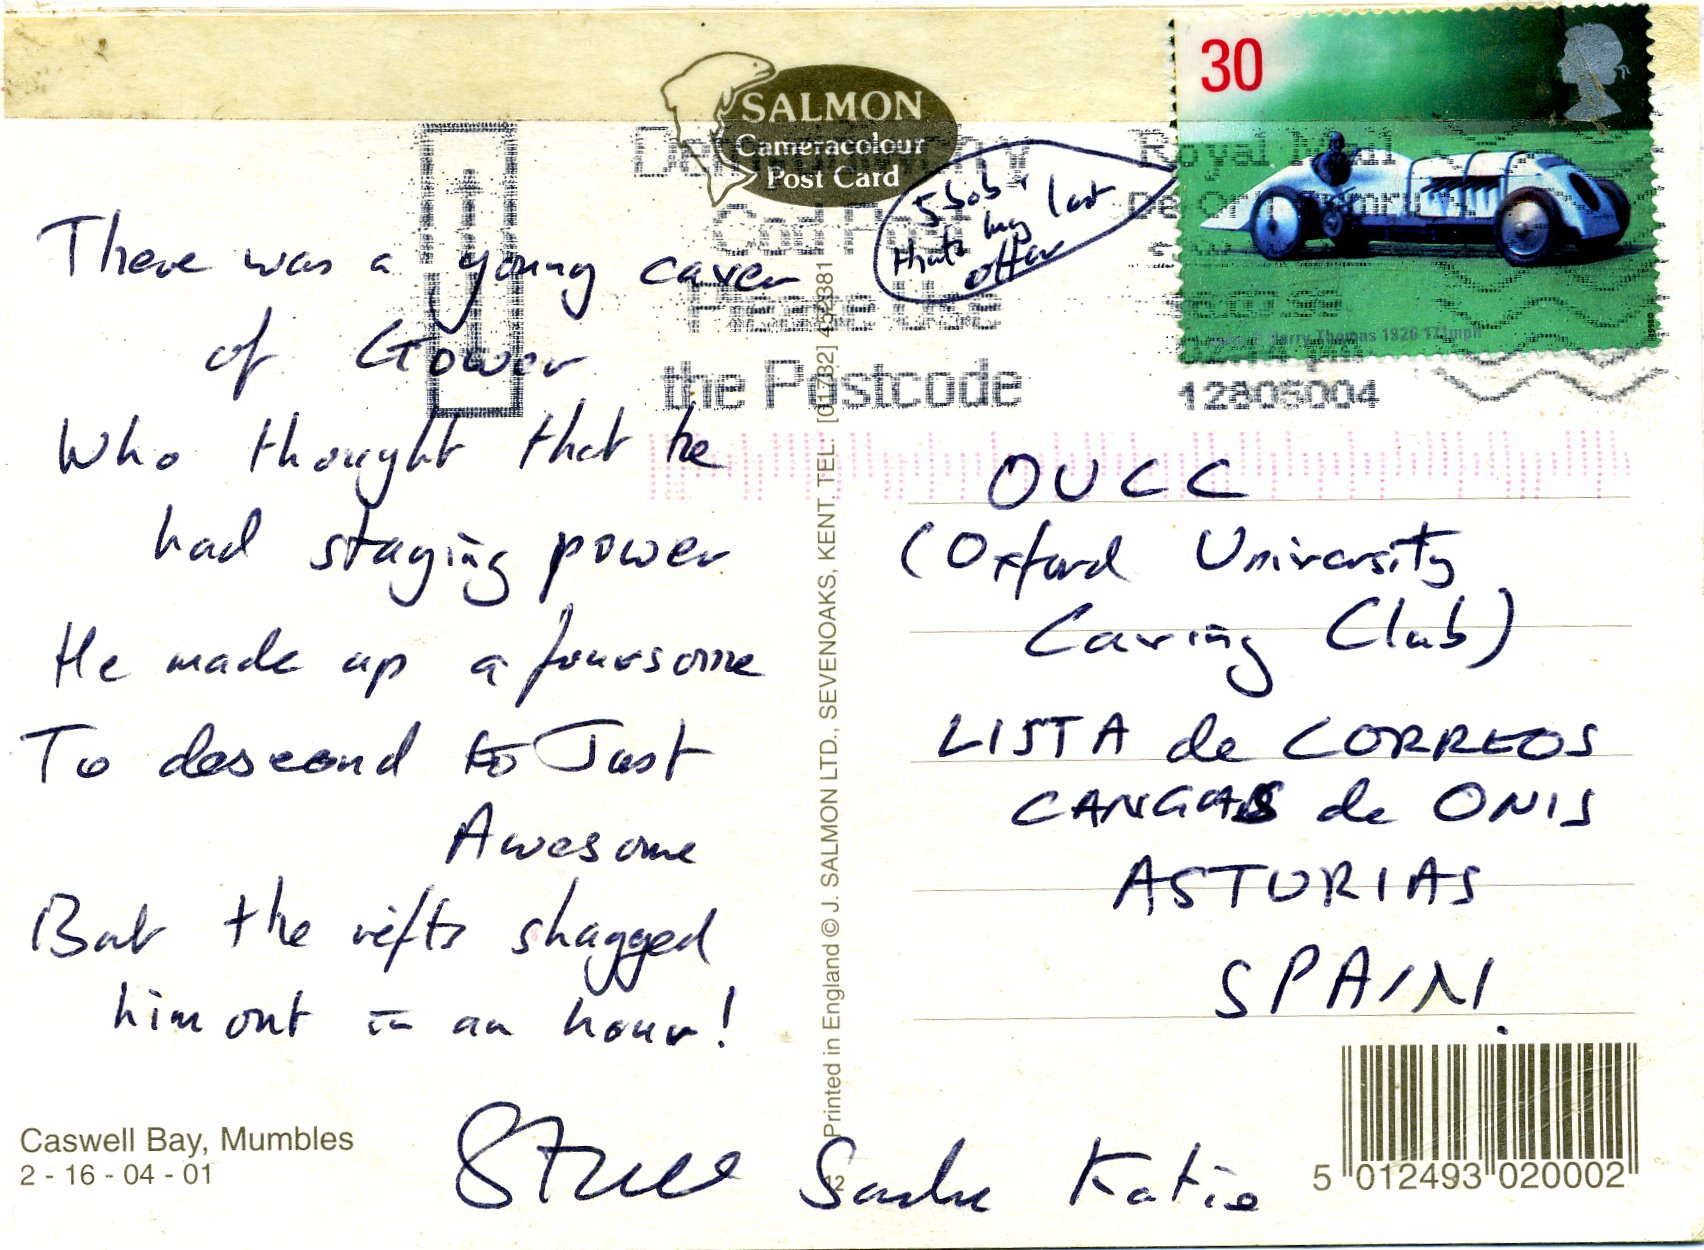 SALMON
Cameracolour
Post Card
30
5 bob +
thats my last
offer
Royal Mail
the Postcode
Please Use
12805004
There was a young caver
of Gower
Who thought that he
had staying power
He made up a foursome
To descend to Just
Awesome
But the rifts shagged
him out in an hour!
OUCC
(Oxford University
Caving Club)
LISTA de CORREOS
CANGAS de ONIS
ASTURIAS
SPAIN.
Printed in England © J. SALMON LTD., SEVENOAKS, KENT. TEL. [01732] 452381
Caswell Bay, Mumbles
2 - 16 - 04 - 01
Katie
5 012493 020002